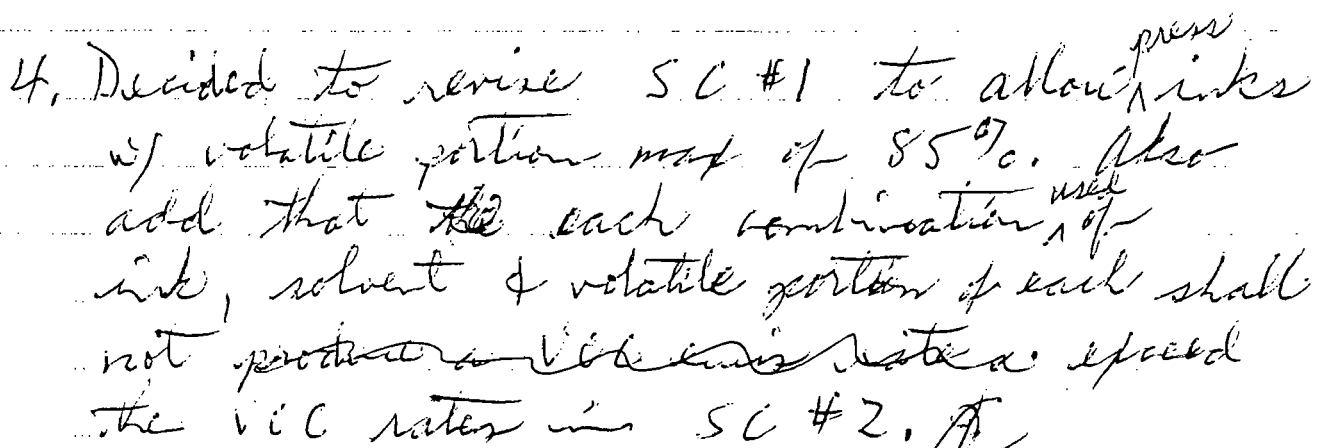 4. Decided to revise SC #1 to allow press inks
w/ volatile portion max of 85%. Also
add that each combination used of
ink, solvent & volatile portion of each shall
not exceed
the VOC rates in SC #2.